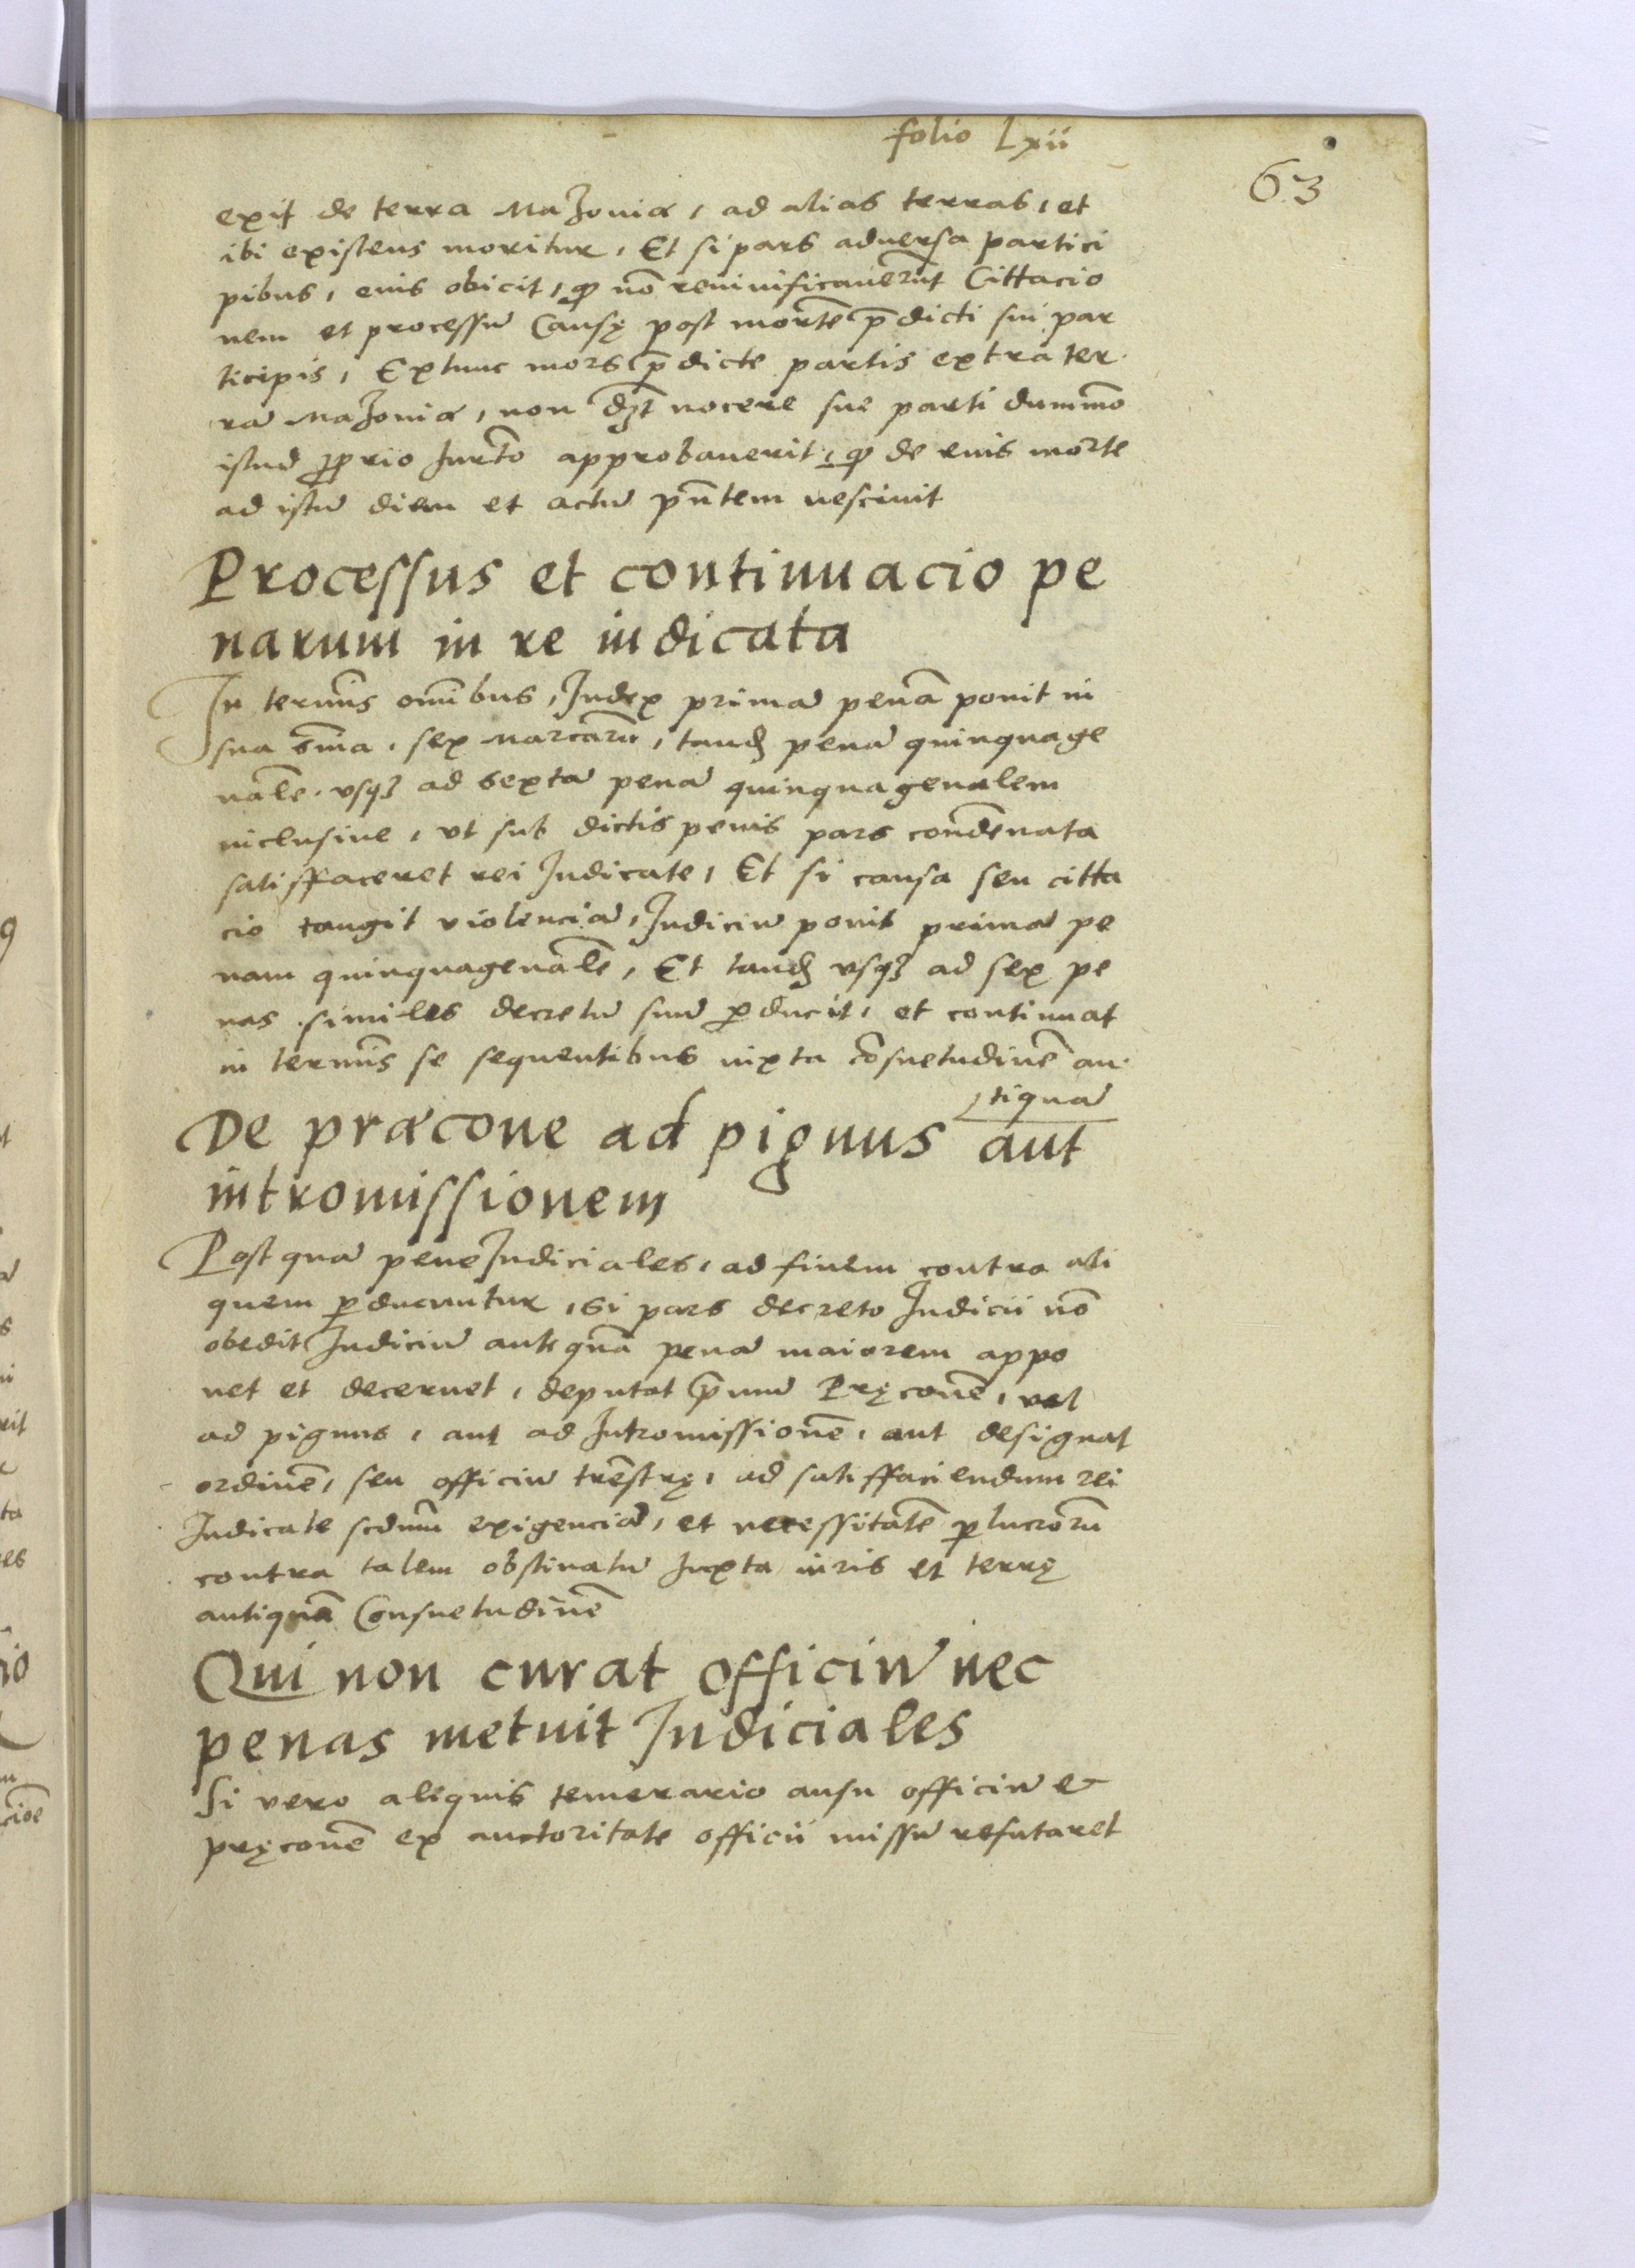 folio Lxii
63
exit de terra Mazoviæ, ad alias terras, et
ibi existens moritur, Et si pars adversa partici
pibus, eius obicit, ꝙ nō revivificaverūt Cittacio
nem et processū Causę post mortē p̄dicti sui par
ticipis, Extunc mors p̄dicte partis extra ter
rā Mazoviæ, non dꝫt nocere sue parti dummō
istud ꝓprio Iurt̄o approbaverit, ꝙ de eius morte
ad istū diem et actū pn̄tem nescivit
Processus et continuacio pe
narum in re iudicata
In termīs om̄ibus, Iudex primā penā ponit in
sua sm̄a, sex Marcarū, tandꝫ penā quinquage
nalē, vsqꝫ ad sextā penā quinquagenalem
inclusive, vt sub dictis penis pars condēnata
satisffaceret rei Iudicate, Et si causa seu citta
cio tangit violenciā, Iudiciū ponit primā pe
nam quinquagenalē, Et tandꝫ vsqꝫ ad sex pe
nas similes decretū suū ꝑducit, et continuat
in termīs se sequentibus iuxta cōsuetudinē an
tiquā
De præcone ad pignus aut
intromissionem
Post quā pene Iudiciales, ad finem contra ali
quem ꝑducuntur, Si pars decreto Iudicii nō
obedit Iudiciū ante quā penā maiorem appo
net et decernet, deputat p̄mū Pręconē, vel
ad pignus, aut ad Intromissionē, aut designat
ordinē, seu officiū trēstrę, ad satisffaciendum rei
Iudicate scdm̄ exigenciā, et necessitatē ꝑlucrorū
contra talem obstinatū Iuxta iuris et terrę
antiquā Consuetudinē
Qui non curat officiū nec
penas metuit Iudiciales
Si vero aliquis temerario ausu officiū et
pręconē ex auctoritate officii missū refutaret